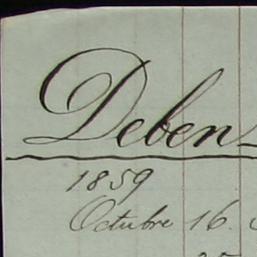 Deben
1859
Octubre 16.